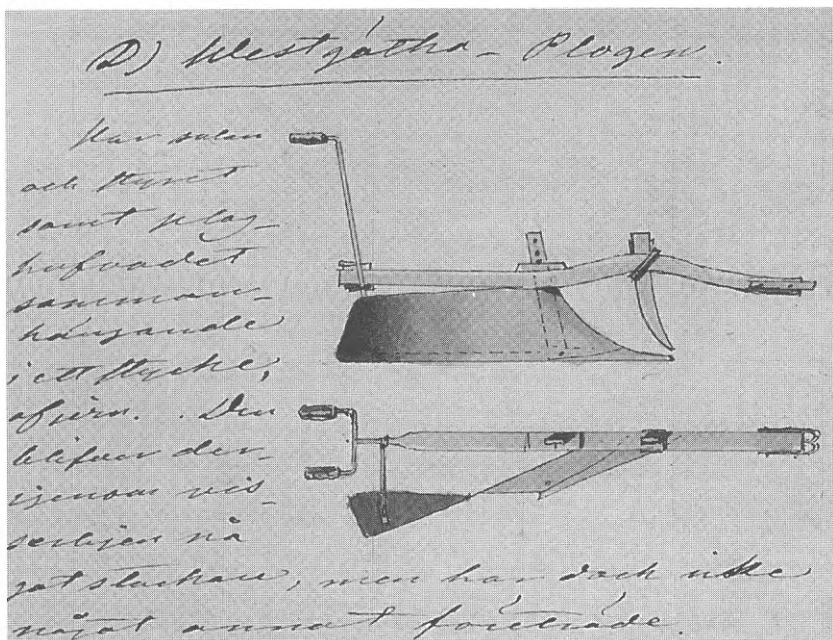 D) Westgötha-Plogen.
Har sulan
och styret
samt plog-
hufvudet
samman-
hängande
i ett stycke,
af jern. Den
blifver der-
igenom vis-
serligen nå
got starkare, men har dock icke
något annat företräde.